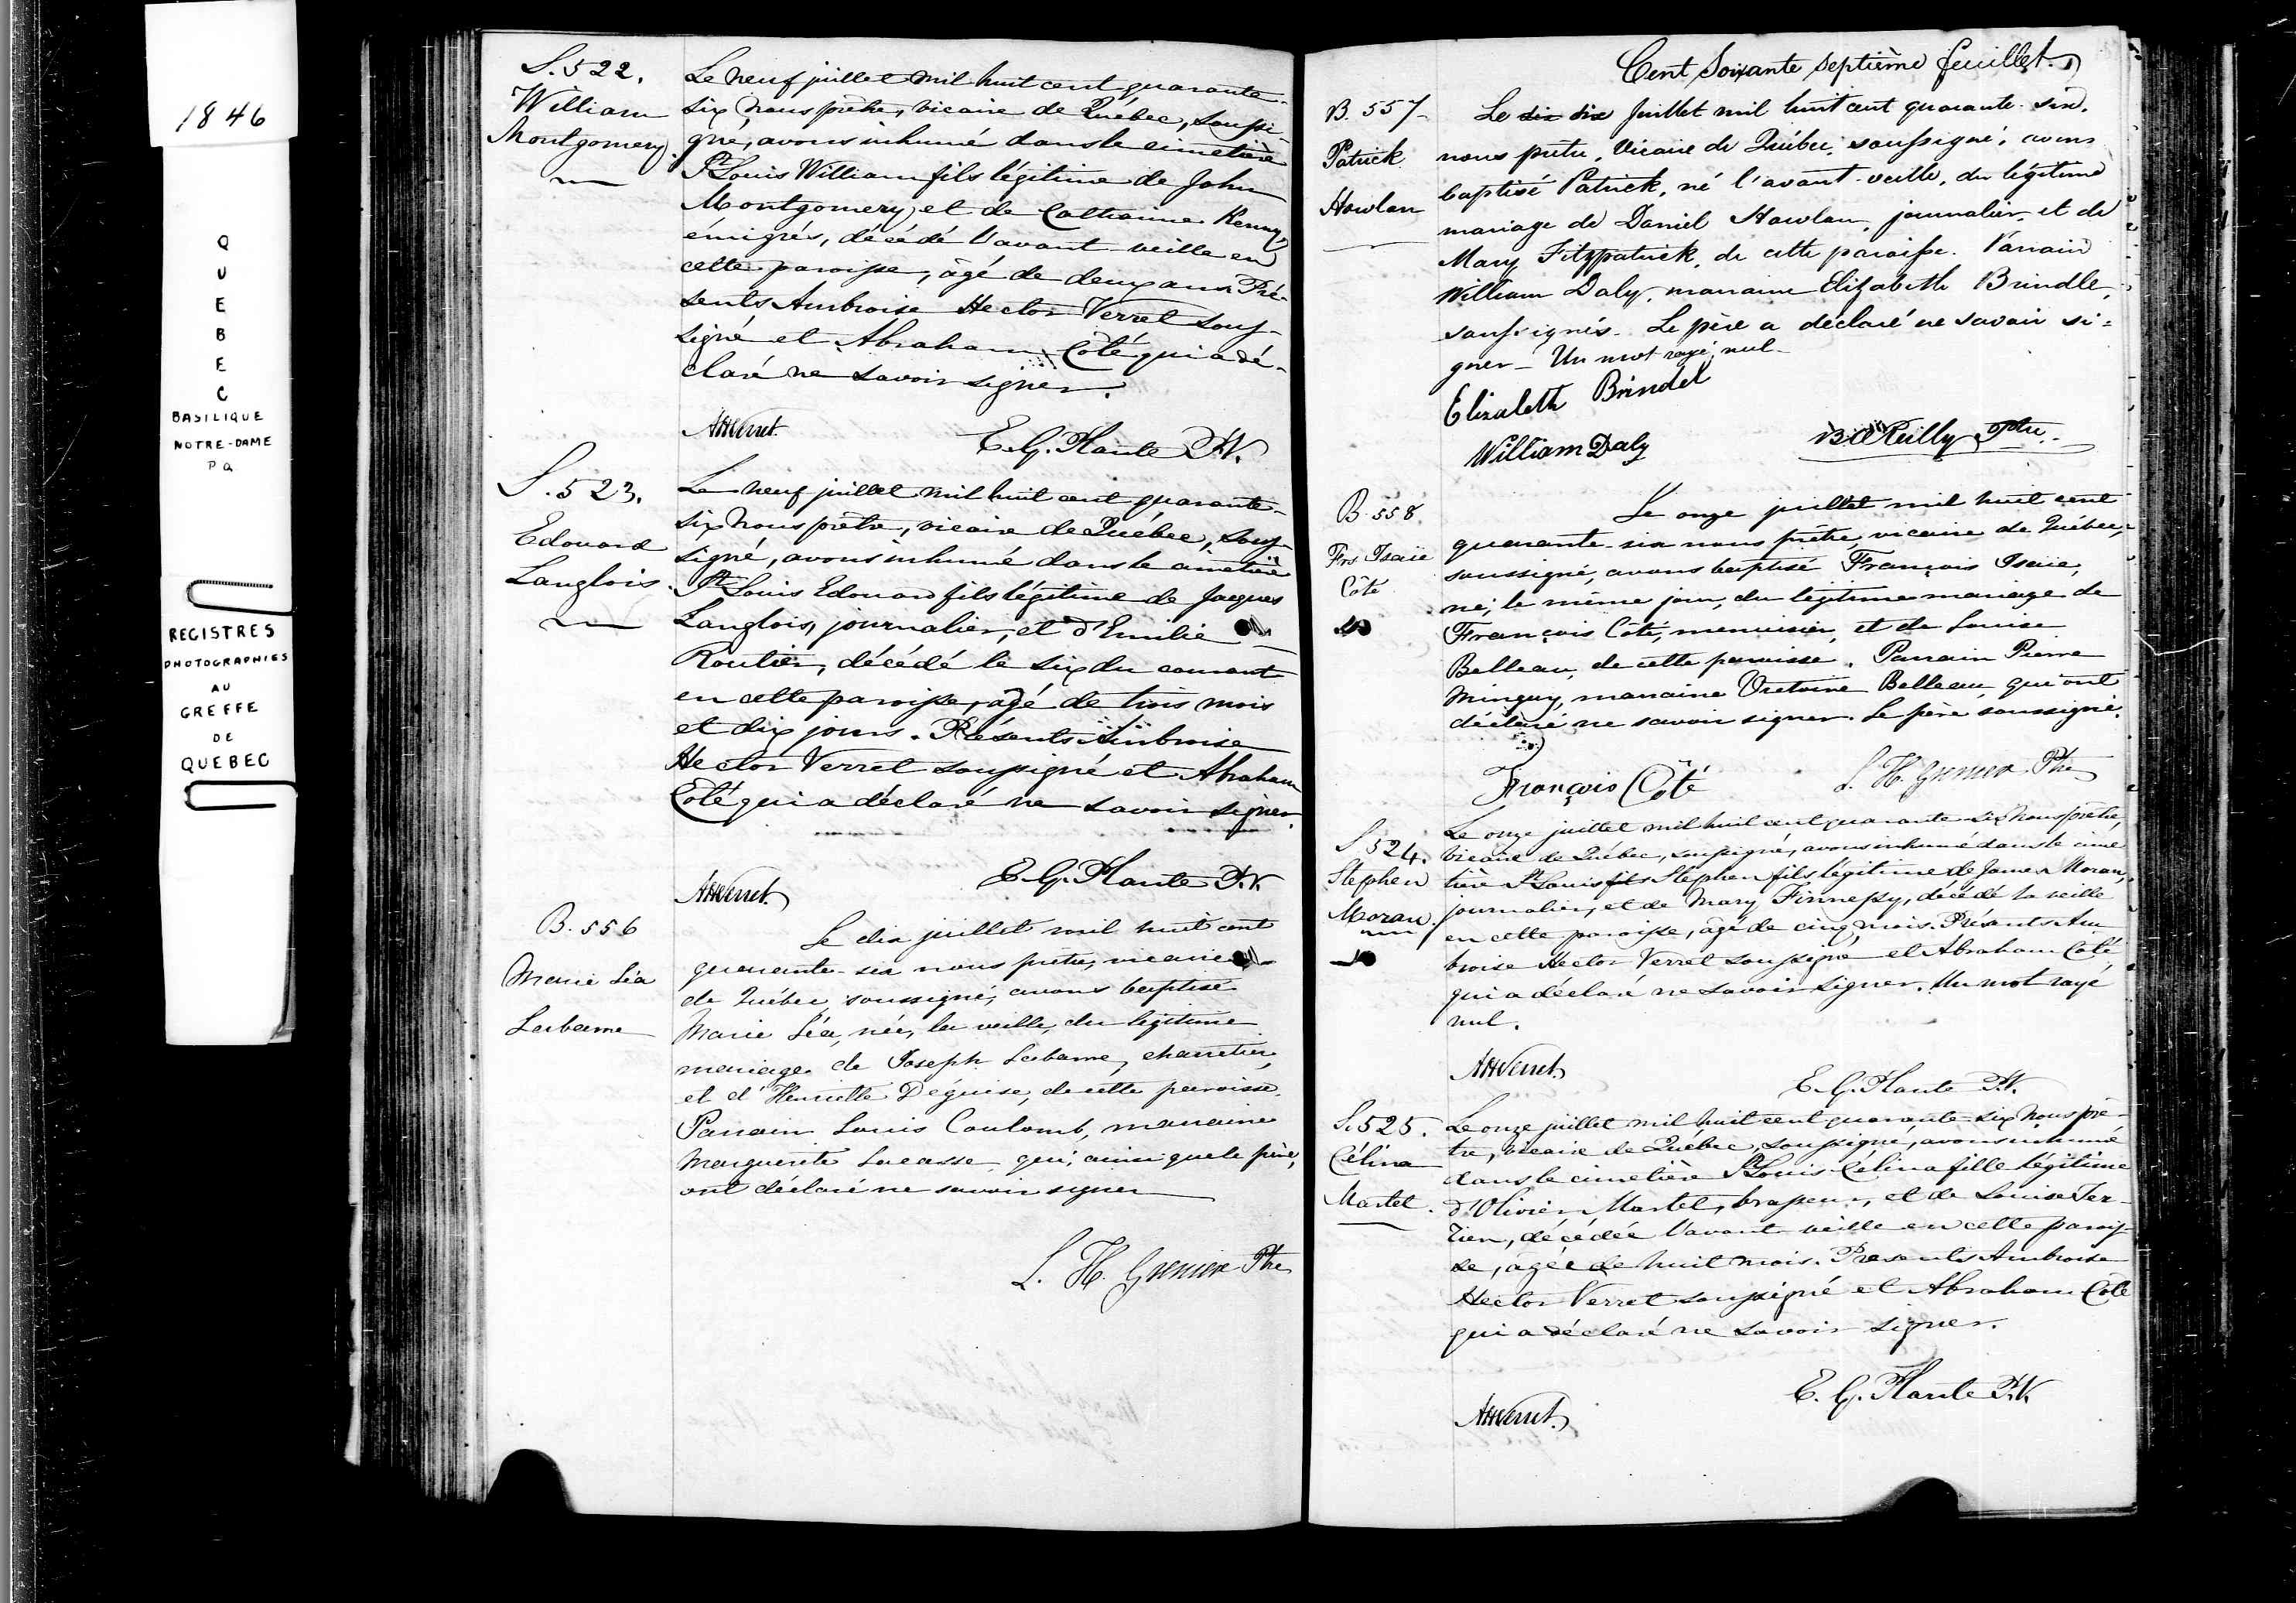 1846
QUEBEC
BASILIQUE
NOTRE-DAME
P Q
REGISTRES
PHOTOGRAPHIES
AU
GREFFE
DE
QUEBEC
S. 522.
William
Montgomery
Le neuf juillet mil huit cent quarante-
six nous prêtre, vicaire de Québec, soussi-
gné, avons inhumé dans le cimetière
St Louis William fils légitime de John
Montgomery, et de Catherine Kenny,
émigrés, décédé l'avant-veille en
cette paroisse, âgé de deux ans. Pré-
sents Ambroise Hector Verret sous-
signé et Abraham Côté qui a dé-
claré ne savoir signer.
AHVerret.
E. G. Plante P.V.
S. 523.
Edouard
Langlois.
Le neuf juillet mil huit cent quarante-
six nous prêtre, vicaire de Québec, sous-
signé, avons inhumé dans le cimetière
St Louis Edouard fils légitime de Jacques
Langlois, journalier, et d'Emilie
Routier, décédé le six du courant
en cette paroisse, âgé de trois mois
et dix jours. Présents Ambroise
Hector Verret soussigné et Abraham
Côté qui a déclaré ne savoir signer.
AHVerret.
E. G. Plante P.V.
B. 556
Marie Léa
Labarre
Le dix juillet mil huit cent
quarante-six nous prêtre, vicaire
de Québec soussigné, avons baptisé
Marie Léa, née, la veille, du légitime
mariage de Joseph Labarre, charretier,
et d'Henriette Déguise, de cette paroisse.
Parrain Louis Coulomb, marraine
Marguerite Lacasse qui, ainsi que le père,
ont déclaré ne savoir signer
L. H. Grenier Ptre
Cent Soixante Septième feuillet.
B. 557
Patrick
Howlan
Le dix dix Juillet mil huit cent quarante-six.
nous prêtre, Vicaire de Québec, soussigné, avons
baptisé Patrick, né l'avant-veille, du légitime
mariage de Daniel Howlan, journalier, et de
Mary Fitzpatrick, de cette paroisse. Parrain
William Daly, marraine Elizabeth Brindle,
soussignés. Le père a déclaré ne savoir si=
gner - Un mot rayé nul -
Elizabeth Brindel
William Daly
B. O'Reilly Ptre.
B. 558.
Frs Isaïe
Côté
Le onze juillet mil huit cent
quarante-six nous prêtre, vicaire de Québec,
soussigné, avons baptisé François Isaïe,
né, le même jour, du légitime mariage de
François Côté, menuisier, et de Louise
Belleau, de cette paroisse. Parrain Pierre
Minguy, marraine Victoire Belleau qui ont
déclaré ne savoir signer. Le père soussigné.
François Côté
L. H. Grenier Ptre
S 524.
Stephen
Moran.
Le onze juillet mil huit cent quarante-six nous prêtre,
vicaire de Québec, soussigné, avons inhumé dans le cime
tière St Louis fils Stephen fils légitime de James Moran,
journalier, et de Mary Finnessy, décédé la veille
en cette paroisse, âgé de cinq mois. Présents Am
broise Hector Verret soussigné et Abraham Côté
qui a déclaré ne savoir signer. Un mot rayé
nul.
AHVerret.
E. G. Plante P.V.
S. 525.
Célina
Martel.
Le onze juillet mil huit cent quarante-six nous prê-
tre, vicaire de Québec, soussigné, avons inhumé
dans le cimetière St Louis Célina fille légitime
d'Olivier Martel, brasseur, et de Louise Ter-
rien, décédée l'avant veille en cette parois-
se, âgée de huit mois. Présents Ambroise
Hector Verret soussigné et Abraham Côté
qui a déclaré ne savoir signer.
AHVerret.
E. G. Plante P.V.